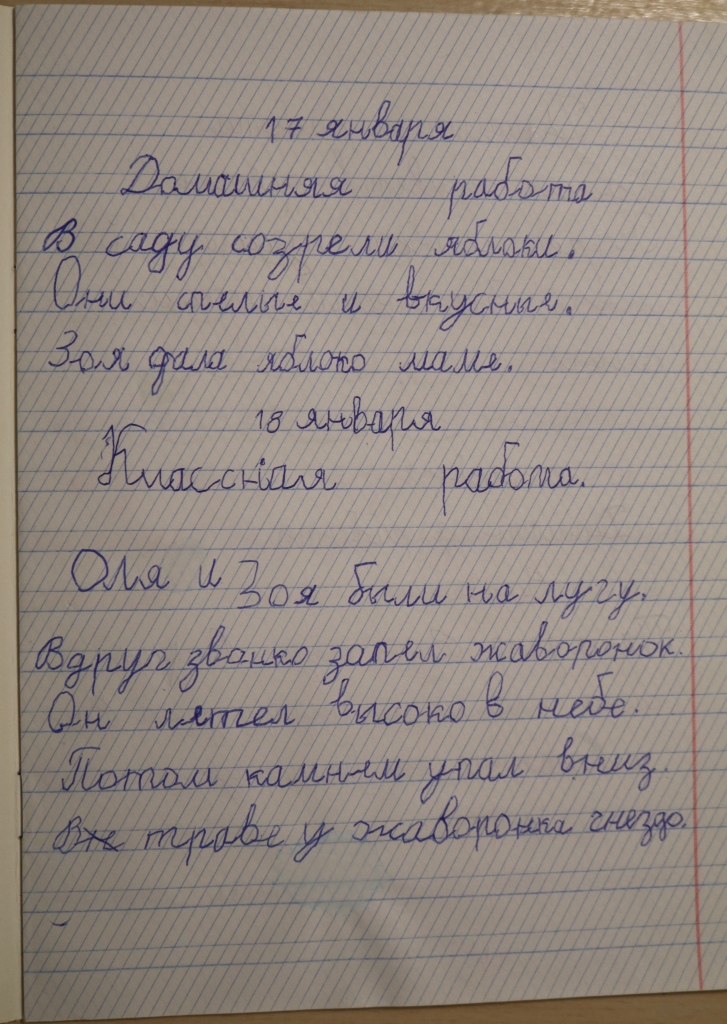 17 января
Домашняя работа
В саду созрели яблоки.
Они спелые и вкусные.
Зоя дала яблоко маме.
18 января
Классная работа.
Оля и Зоя были на лугу.
Вдруг званко запел жаворонок.
Он лятел высоко в небе.
Потом камнем упал вниз.
В траве у жаворонка гнездо.